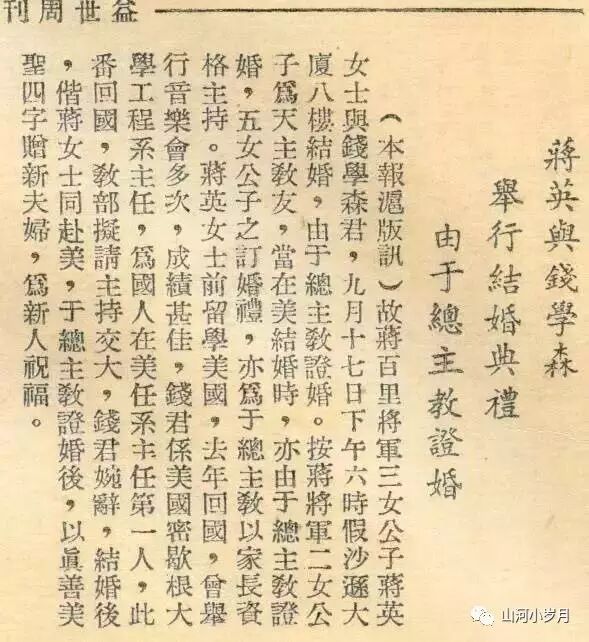 刊周世益
蔣英與錢學森
舉行結婚典禮
由于總主教證婚
（本報滬版訊）故蔣百里將軍三女公子蔣英
女士與錢學森君，九月十七日下午六時假沙遜大
廈八樓結婚，由于總主教證婚。按蔣將軍二女公
子爲天主教友，當在美結婚時，亦由于總主教證
婚，五女公子之訂婚禮，亦爲于總主教以家長資
格主持。蔣英女士前留學美國，去年回國，曾舉
行音樂會多次，成績甚佳，錢君係美國密歇根大
學工程系主任，爲國人在美任系主任第一人，此
番回國，教部擬請主持交大，錢君婉辭，結婚後
，偕蔣女士同赴美，于總主教證婚後，以眞善美
聖四字贈新夫婦，爲新人祝福。
山河小岁月